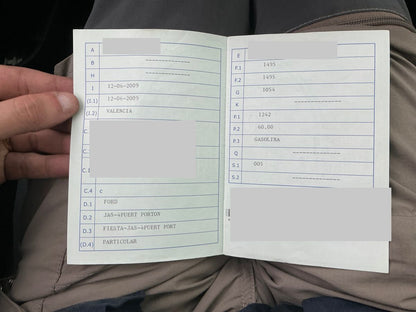 A
B ------------
H ------------
I 12-06-2009
(I.1) 12-06-2009
(I.2) VALENCIA
C.
C.
C.
C.4 c
D.1 FORD
D.2 JA8-4PUERT PORTON
D.3 FIESTA-JA8-4PUERT PORT
(D.4) PARTICULAR
E
F.1 1495
F.2 1495
G 1054
K ------------
P.1 1242
P.2 60.00
P.3 GASOLINA
Q ------------
S.1 005
S.2 ------------